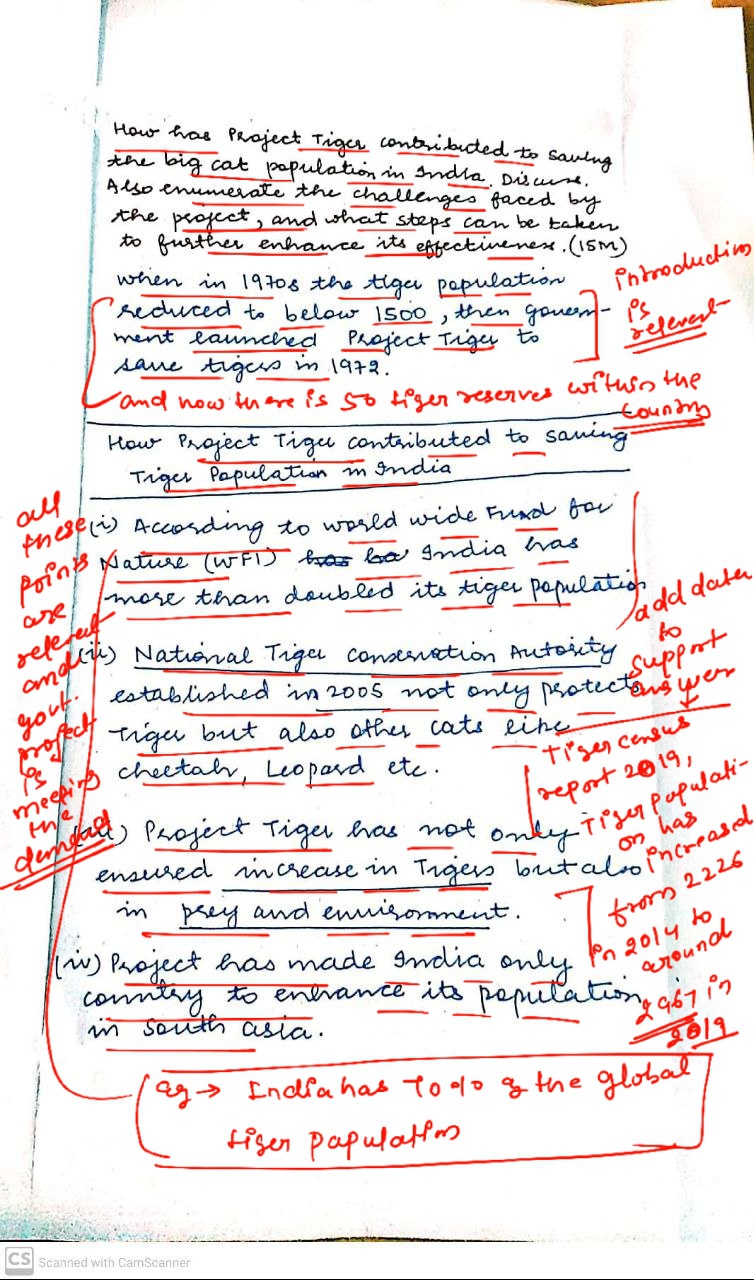 How has Project Tiger contributed to saving
the big cat population in India. Discuss.
Also enumerate the challenges faced by
the project, and what steps can be taken
to further enhance its effectiveness. (15M)
when in 1970s the tiger population
reduced to below 1500, then govern-
ment launched Project Tiger to
save tigers in 1972.
introduction
is
relevent
and now there is 50 tiger reserves within the
country
How Project Tiger contributed to saving
Tiger Population in India
(i) According to world wide Fund for
Nature (WFI) India has
more than doubled its tiger population
(ii) National Tiger conservation Autority
established in 2005 not only protects
Tiger but also other cats like
cheetah, Leopard etc.
(iii) Project Tiger has not only
ensured increase in Tigers but also
in prey and environment.
(iv) Project has made India only
country to enhance its population
in south asia.
all
these
points
are
relevent
and
govt.
project
is
meeting
the
demand
add data
to
support
answer
Tiger census
report 2019,
Tiger populati-
on has
increased
from 2226
in 2014 to
around
2967 in
2019
eg → India has 70% of the global
tiger population
CS Scanned with CamScanner